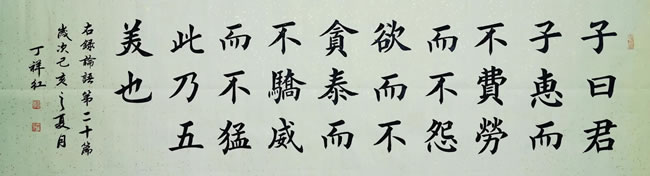 子曰君
子惠而
不費勞
而不怨
欲而不
貪泰而
不驕威
而不猛
此乃五
美也
右錄論語第二十篇
歲次己亥之夏月
丁祥红